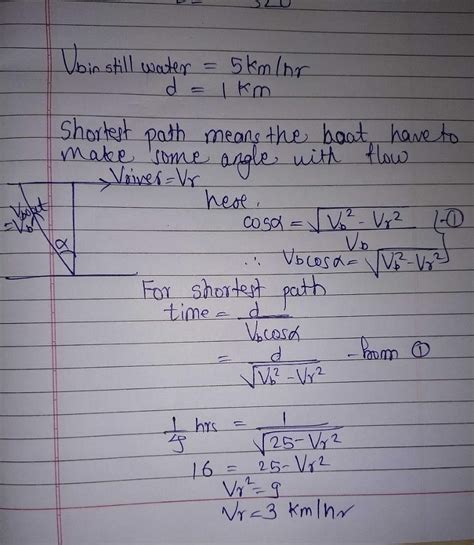 V_b in still water = 5 km/hr
d = 1 Km
Shortest path means the boat have to
make some angle with flow
V_river = V_r
V_boat = V_b
α
here,
cosα = √(V_b² - V_r²) / V_b -①
∴ V_b cosα = √(V_b² - V_r²)
For shortest path
time = d / V_b cosα
= d / √(V_b² - V_r²) - from ①
1/4 hrs = 1 / √(25 - V_r²)
16 = 25 - V_r²
V_r² = 9
V_r = 3 km/hr